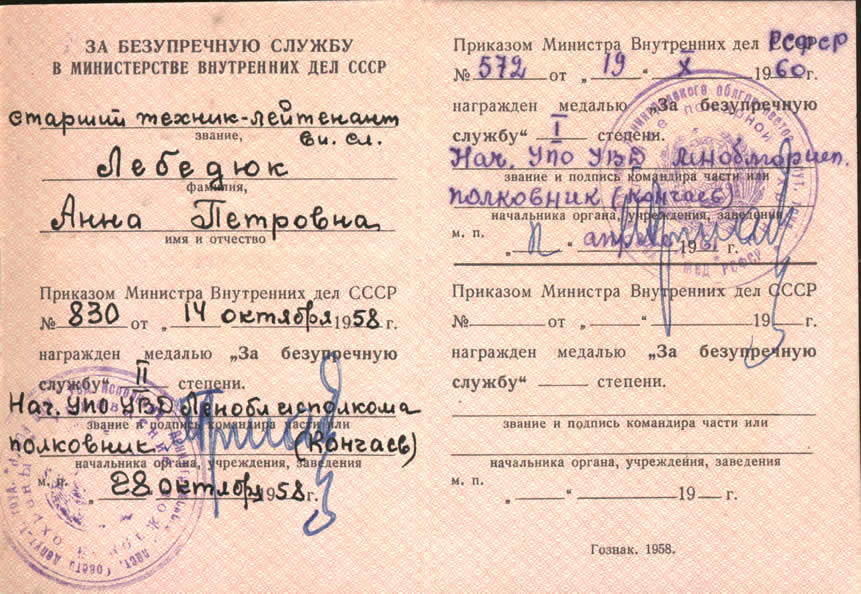 ЗА БЕЗУПРЕЧНУЮ СЛУЖБУ
В МИНИСТЕРСТВЕ ВНУТРЕННИХ ДЕЛ СССР
старший техник-лейтенант
звание, вн. сл.
Лебедюк
фамилия,
Анна Петровна
имя и отчество
Приказом Министра Внутренних дел СССР
№ 830 от „14 октября 1958 г.
награжден медалью „За безупречную
службу“ II степени.
Нач. УПО УВД Леноблисполкома
звание и подпись командира части или
полковник (Кончаев)
начальника органа, учреждения, заведения
м. п. „28 октября 1958 г.
Приказом Министра Внутренних дел РСФСР
№ 572 от „19“ X 1960 г.
награжден медалью „За безупречную
службу“ I степени.
Нач. УПО УВД
звание и подпись командира части или
полковник (Кончаев)
начальника органа, учреждения, заведения
м. п. „ “ апреля 1961 г.
Приказом Министра Внутренних дел СССР
№ от „ “ 19 г.
награжден медалью „За безупречную
службу“ степени.
звание и подпись командира части или
начальника органа, учреждения, заведения
м. п. „ “ 19 г.
Гознак. 1958.